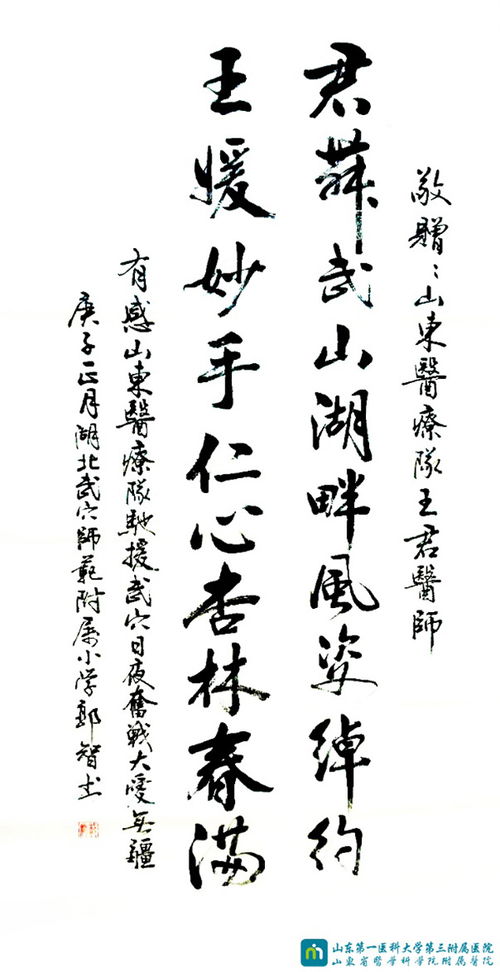 敬贈：山東醫療隊王君醫師
君舞武山湖畔風姿綽約
王媛妙手仁心杏林春滿
有感山東醫療隊馳援武穴日夜奮戰大愛無疆
庚子正月湖北武穴師範附属小学郭智书
山东第一医科大学第三附属医院
山東省醫學科學院附屬醫院